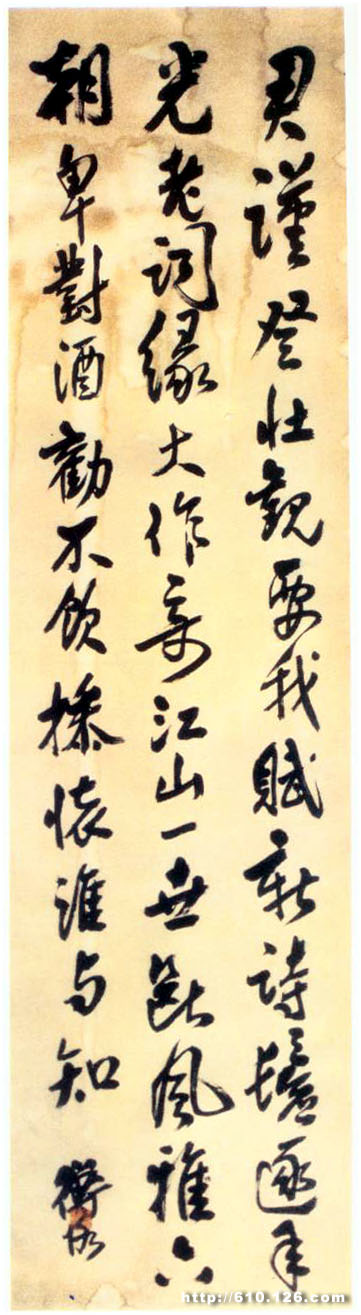 君謹登壯觀要我賦新詩鬢逐年
光老詞緣大作奇江山一世風雅六
朝卑對酒勸不飲操懷誰与知
http://610.126.com